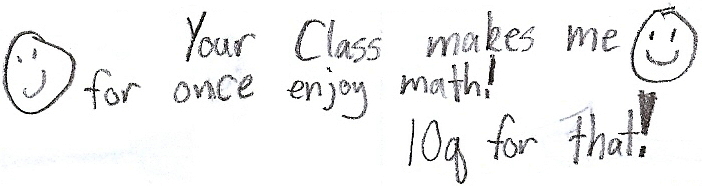 Your Class makes me
for once enjoy math!
10q for that!